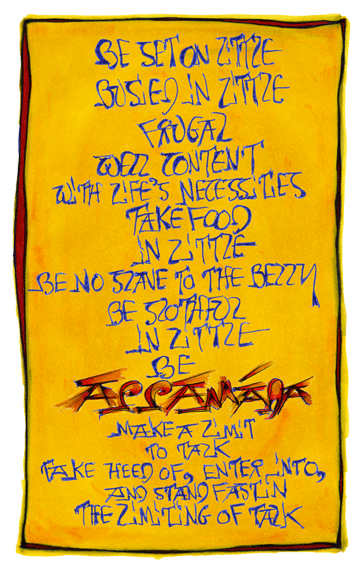 BE SET ON LITTLE
BUSIED IN LITTLE
FRUGAL
WELL CONTENT
WITH LIFE'S NECESSITIES
TAKE FOOD
IN LITTLE
BE NO SLAVE TO THE BELLY
BE SLOTHFUL
IN LITTLE
BE
APPAMÁDA
MAKE A LIMIT
TO TALK
TAKE HEED OF, ENTER INTO,
AND STAND FAST IN
THE LIMITING OF TALK